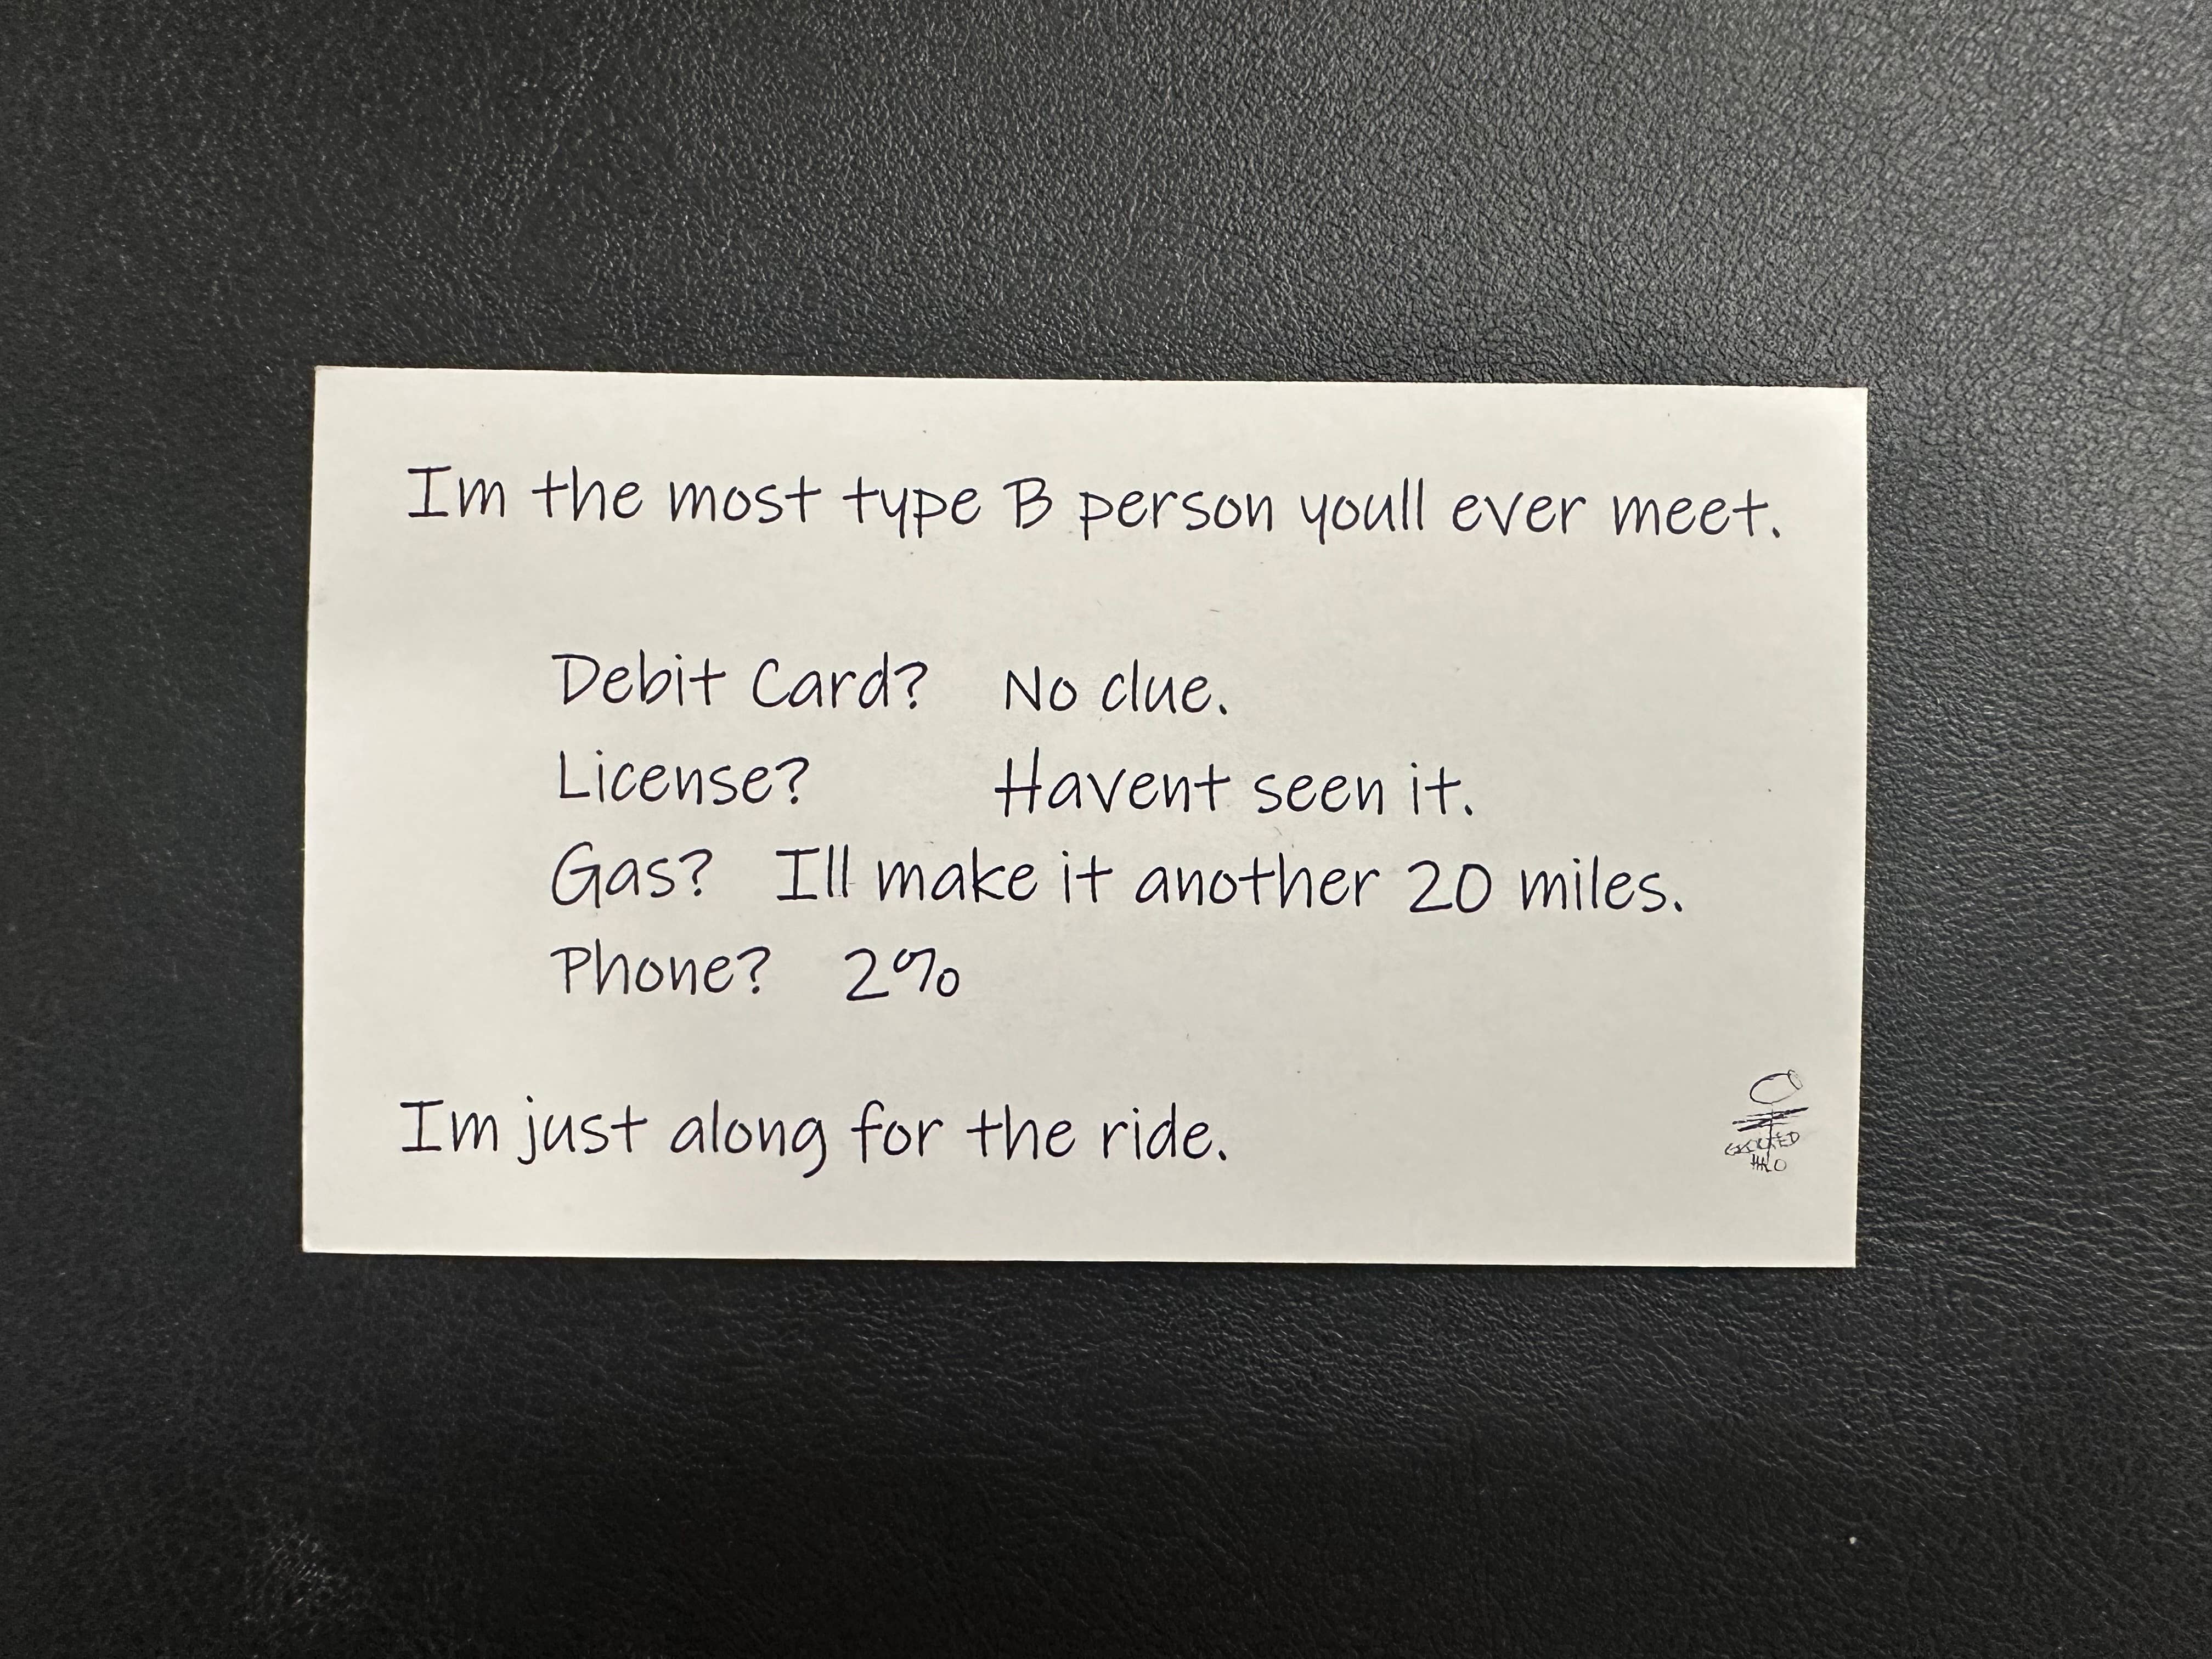 Im the most type B person youll ever meet.
Debit Card? No clue.
License? Havent seen it.
Gas? Ill make it another 20 miles.
Phone? 2%
Im just along for the ride.